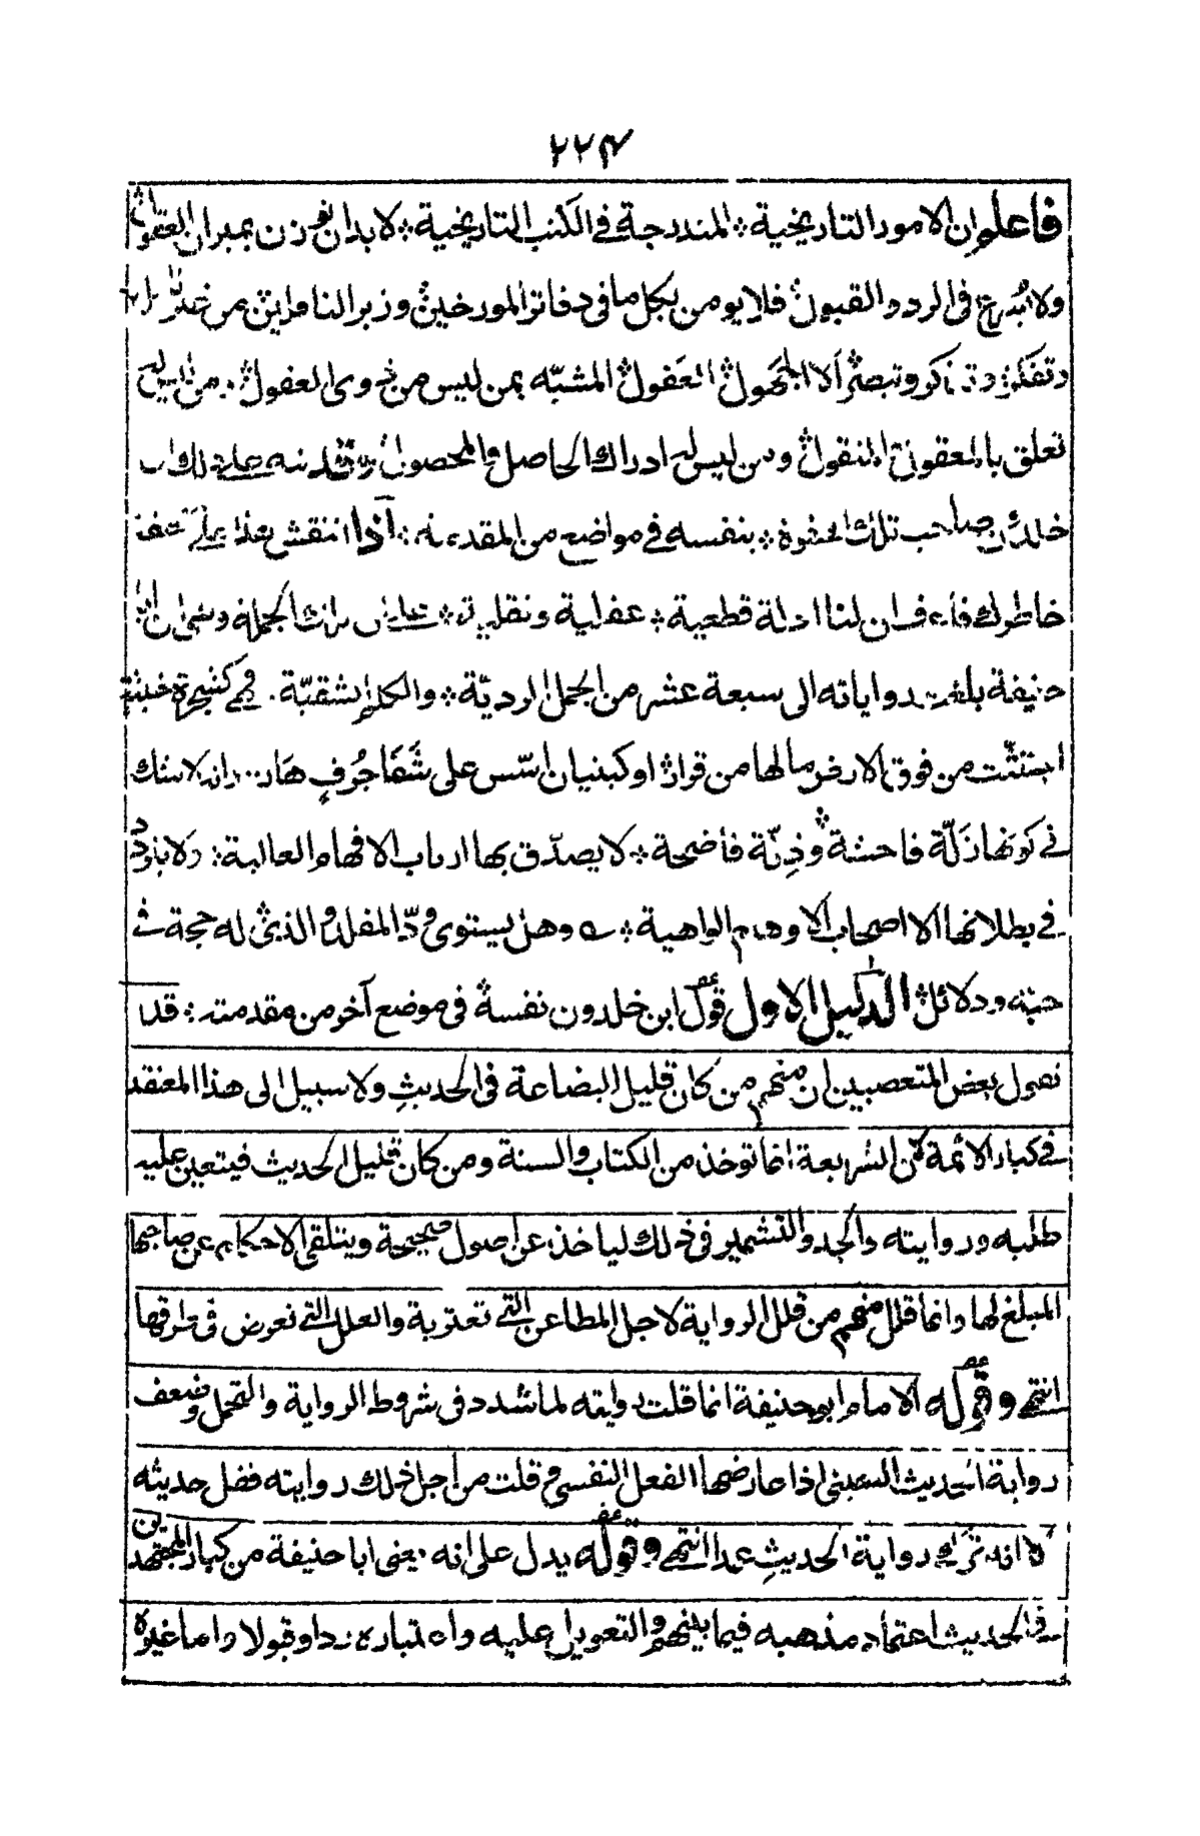 ۲۲۴
فاعلم ان الامور التاريخية المندرجة في الكتب التاريخية لا بد ان توزن بميزان العقول
ولا في الرد والقبول فلا يومن بكل ما في دفاتر المورخين وزبر الناقلين من غير
وتفكر وتذكر وتبصر الا الجهول الغفول المشبّه بمن ليس من ذوي العقول من ليس له
تعلق بالمعقول المنقول ومن ليس له ادراك الحاصل والمحصول وقد نبه على ذلك ابن
خلدون صاحب تلك الهفوة بنفسه في مواضع من المقدمة اذا انتقش هذا على
خاطرك فان لنا ادلة قطعية عقلية ونقلية على ان تلك الجملة وهي ان ابا
حنيفة بلغت رواياته الى سبعة عشر من الجمل الرديّة والكلم كشجرة خبيثة
اجتثّت من فوق الارض مالها من قرار او كبنيان اسّس على شَفَا جُرُفٍ هَار وانه لا شك
في كونها زَلّة فاحشة فاضحة لا يصدّق بها ارباب الافهام العالية ولا يتردد
في بطلانها الا اصحاب الاوهام الواهية ؎ وهل يستوي ودّ المقلد والذي له حجة في
حبّه ودلائل الدليل الاول قول ابن خلدون نفسه في موضع آخر من مقدمته قد
تقول بعض المتعصبين ان منهم من كان قليل البضاعة في الحديث ولا سبيل الى هذا المعتقد
في كبار الائمة لان الشريعة انما توخذ من الكتاب والسنة ومن كان قليل الحديث فيتعين عليه
طلبه وروايته والجد والتشمير في ذلك لياخذ عن اصول صحيحة ويتلقى الاحكام عن صاحبها
المبلغ لها وانما قلل منهم من قلل الرواية لاجل المطاعن التي تعتريه والعلل التي تعرض في طرقها
انتهى وقوله الامام ابو حنيفة انما قلت روايته لما شدد في شروط الرواية والتحمل وضعف
رواية الحديث اليقيني اذا عارضها الفعل النفسي وقلت من اجل ذلك روايته فقل حديثه
لا انه ترك رواية الحديث عمدا انتهى وقوله يدل على انه يعني ابا حنيفة من كبار المجتهدين
في الحديث اعتماد مذهبه فيما بينهم والتعويل عليه واعتباره ردا وقبولا واما غيره